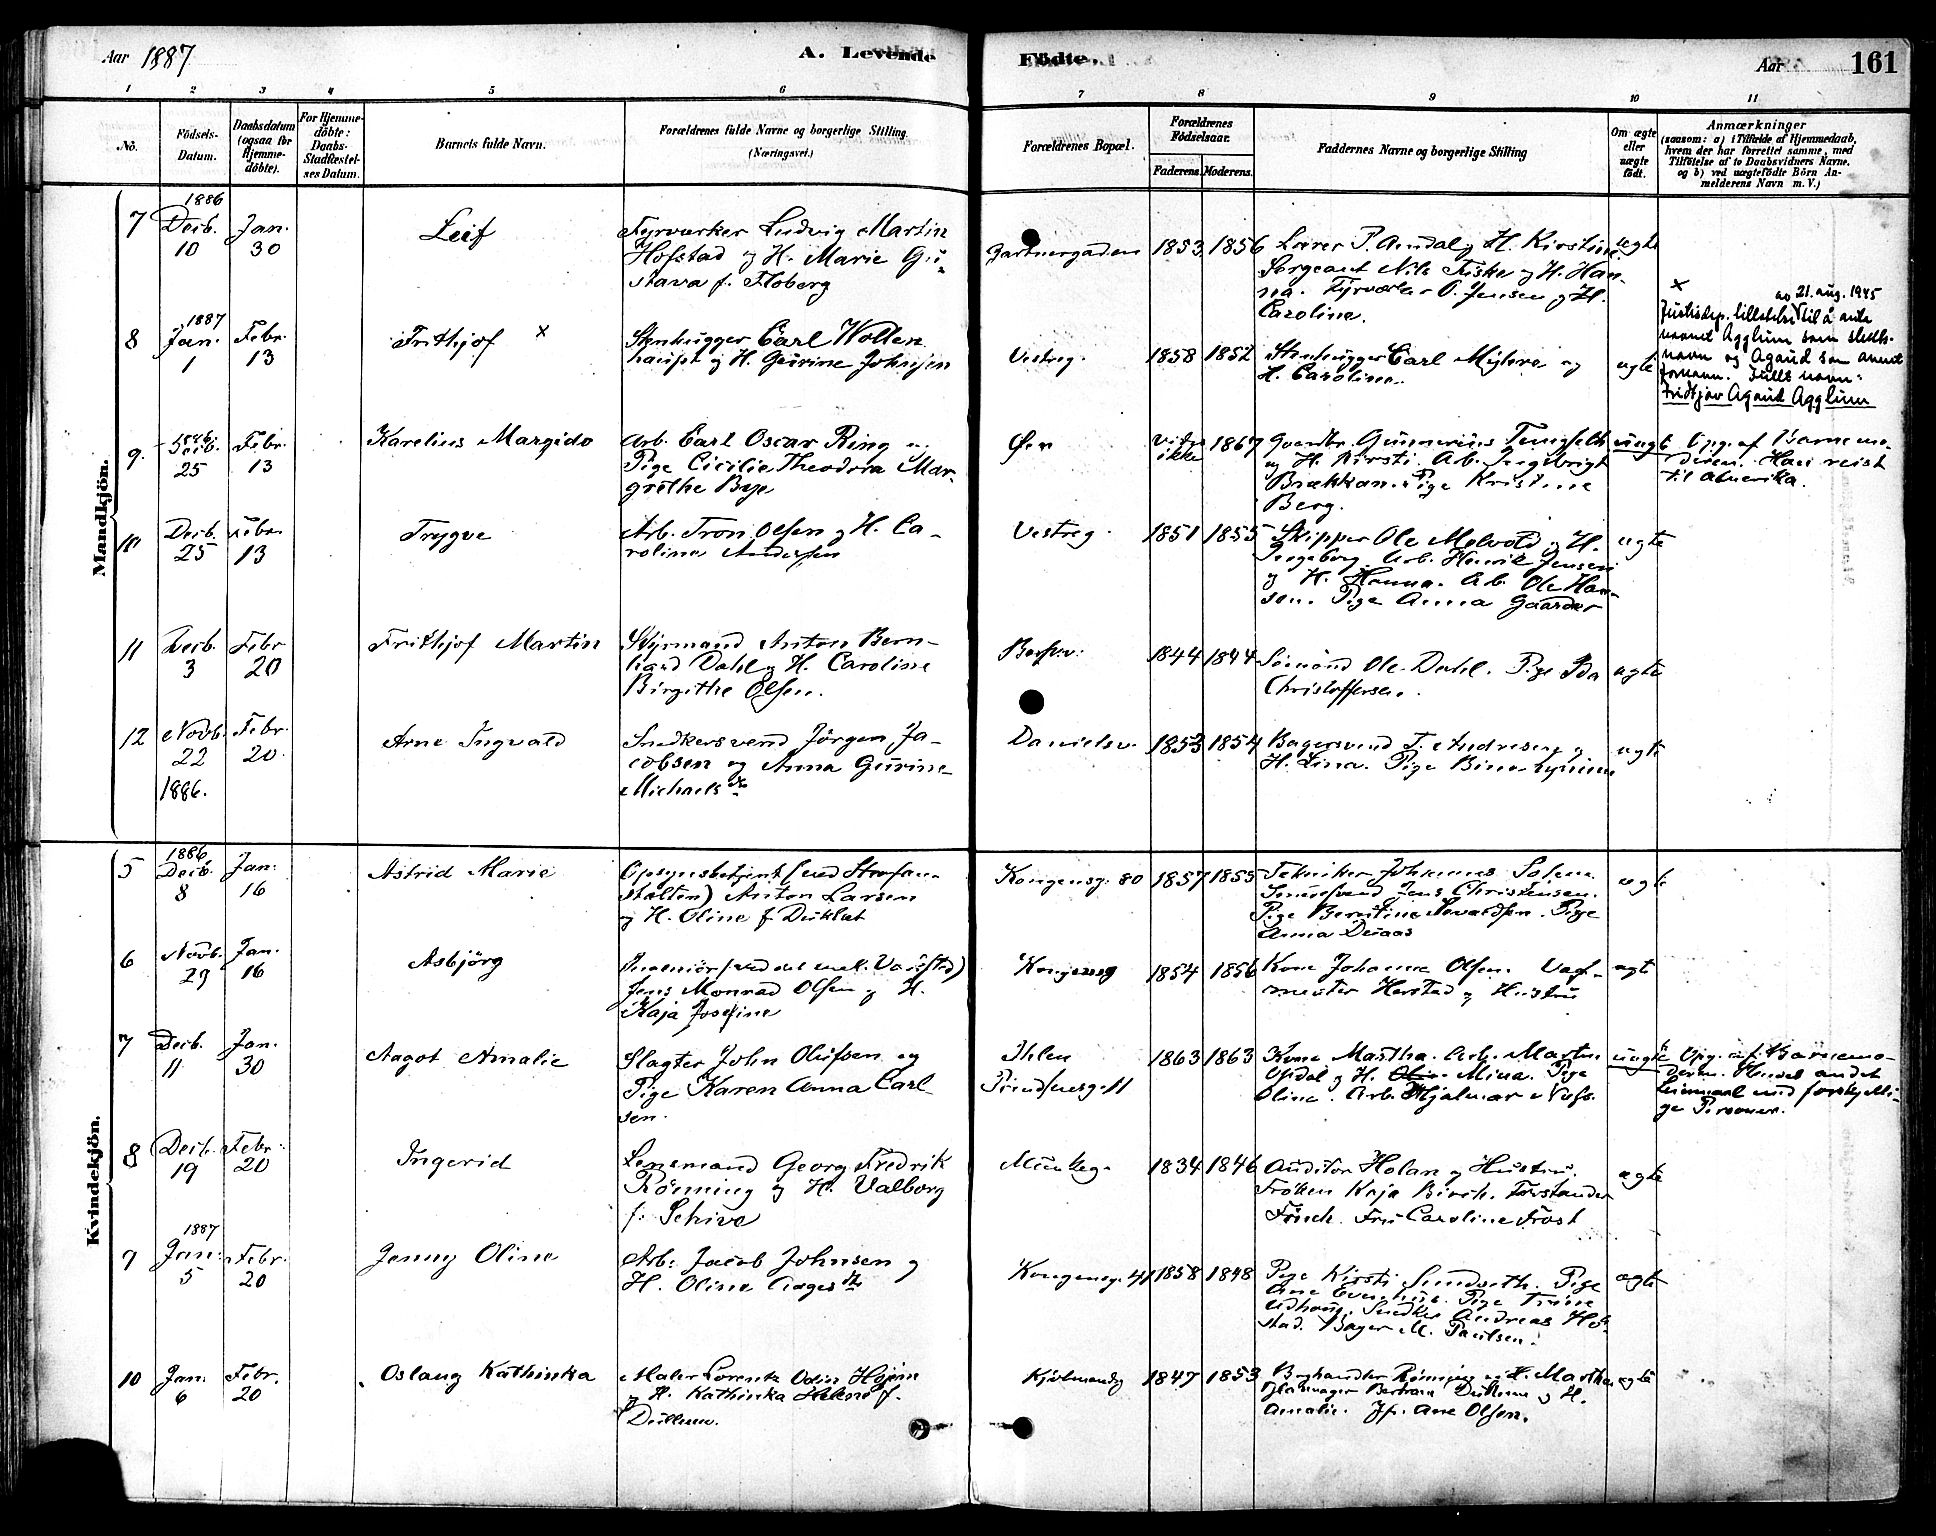 Aar 1887
A. Levende
Födte.
Aar
161
1 2 3 4 5 6 7 8 9 10 11
No.
Födsels-Datum.
Daabsdatum (ogsaa for Hjemme-döbte).
For Hjemme-döbte: Daabs-Stadfæstel-ses Datum.
Barnets fulde Navn.
Forældrenes fulde Navne og borgerlige Stilling.
(Næringsvei.)
Forældrenes Bopæl.
Forældrenes Födselsaar.
Faderens. Moderens.
Faddernes Navne og borgerlige Stilling
Om ægte eller uægte födt.
Anmærkninger
(saasom: a) i Tilfælde af Hjemmedaab,
hvem der har forrettet samme, med
Tilföielse af to Daabsvidners Navne,
og b) ved uægtefödte Börn An-
melderens Navn m. V.)
Mandkjön.
7
1886 Decb. 10
Jan. 30
Leif
Fyrværker Ludvig Martin
Hofstad og H. Marie Gu-
stava f. Floberg
Gartnergaden
1853
1856
Lærer P. Amdal og H. Kirstine
Sergeant Nils Fiske og H. Han-
na. Fyrværker O. Jensen og H.
Caroline.
ægte
8
1887 Jan. 1
Febr. 13
Frithjof x
Stenhugger Carl Wollen
haupt og H. Gurine Johnsen
Vestreg.
1858
1852
Stenhugger Carl Myhre og
H. Caroline.
ægte
x av 21. aug. 1945
Justisdep. tillatelse til å anta
navnet Agglum som slekts-
navn og Agaud som annet
fornavn. Fullt navn:
Fridtjov Agaud Agglum
9.
1886 Decb. 25
Febr. 13
Karelius Margido
Arb. Carl Oscar Ring og
Pige Cicilie Theodora Mar-
grethe Bye
Øen
vides ikke
1867
og H. Kirsti. Arb. Ingebrigt
Brækkan. Pige Kristine
Berg.
uægte
Opg. af Barnemo-
deren. Han reist
til Amerika.
10
Decb. 25
Febr. 13
Trygve
Arb. Tron Olsen og H. Ca-
roline Andersen
Vestreg.
1851
1855
Skipper Ole Melvold og H.
Ingeborg. Arb. Henrik Jensen
og H. Hanna. Arb. Ole Han-
sen. Pige Anna Gaarder
ægte
11
Decb. 3
Febr. 20
Frithjof Martin
Styrmand Anton Bern-
hard Dahl og H. Caroline
Birgithe Olsen.
1844
1844
Sömand Ole Dahl. Pige Ida
Christoffersen.
ægte
12
Novb. 22
1886.
Febr. 20.
Arne Ingvald
Snedkersvend Jörgen Ja-
cobsen og Anna Gurine
Michaelsdr
Danielsv.
1853
1854
Bagersvend T. Andresen og
H. Lina. Pige Bina
ægte
Kvindekjön.
5
1886 Decb. 8
Jan. 16
Astrid Marie
Opsynsbetjent (ved Strafan-
stalten) Anton Larsen
og H. Oline f.
Kongensg. 80
1857
1853
Tekniker Johannes Solem
Jens Christensen.
Pige Berntine Pige
Anna
ægte
6
Novb. 29
Jan. 16
Asbjörg
Ingeniör (ved det mek. Værksted)
Jens Monrad Olsen og H.
Kaja Josefine
Kongensg
1854
1856
Kone Johanna Olsen. Vagt-
mester Herstad og Hustru
ægte
7
Decb. 11
Jan. 30
Aagot Amalie
Slagter John Olufsen og
Pige Karen Anna Carl-
sen.
Ihlen
Prindsensg. 11
1863
1863
Kone Martha. Arb. Martin
Opdal og H. Mina. Pige
Oline. Arb. Hjalmar
uægte
Opg. af Barnemo-
deren. Hendes andet
Leiermaal med forskjelli-
ge Personer.
8
Decb. 19
Febr. 20
Ingerid
Lensmand Georg Fredrik
Rönning og H. Valborg
f. Schive
Munkeg.
1834
1846
Auditör Holan og Hustru.
Fröken Kaja Birch. Forstander
Finch. Fru Caroline Frost
ægte
9
1887 Jan. 5
Febr. 20
Jenny Oline
Arb. Jacob Johnsen og
H. Oline Aagesdr
Kongensg. 41
1858
1848
Pige Kirsti Sundseth. Pige
Ane Pige Trine
Udhaug. Snedker Andreas Hof-
stad. Bager M. Paulsen.
ægte
10
Jan. 6
Febr. 20
Oslaug Kathinka
Maler Lorentz Odin Höjem
og H. Kathinka Helene f.
Dullum.
Kjöbmandsg
1847
1853
Boghandler Rönning og H. Martha
Bertran Dullum og H.
Amalie. Jfr. Ane Olsen.
ægte